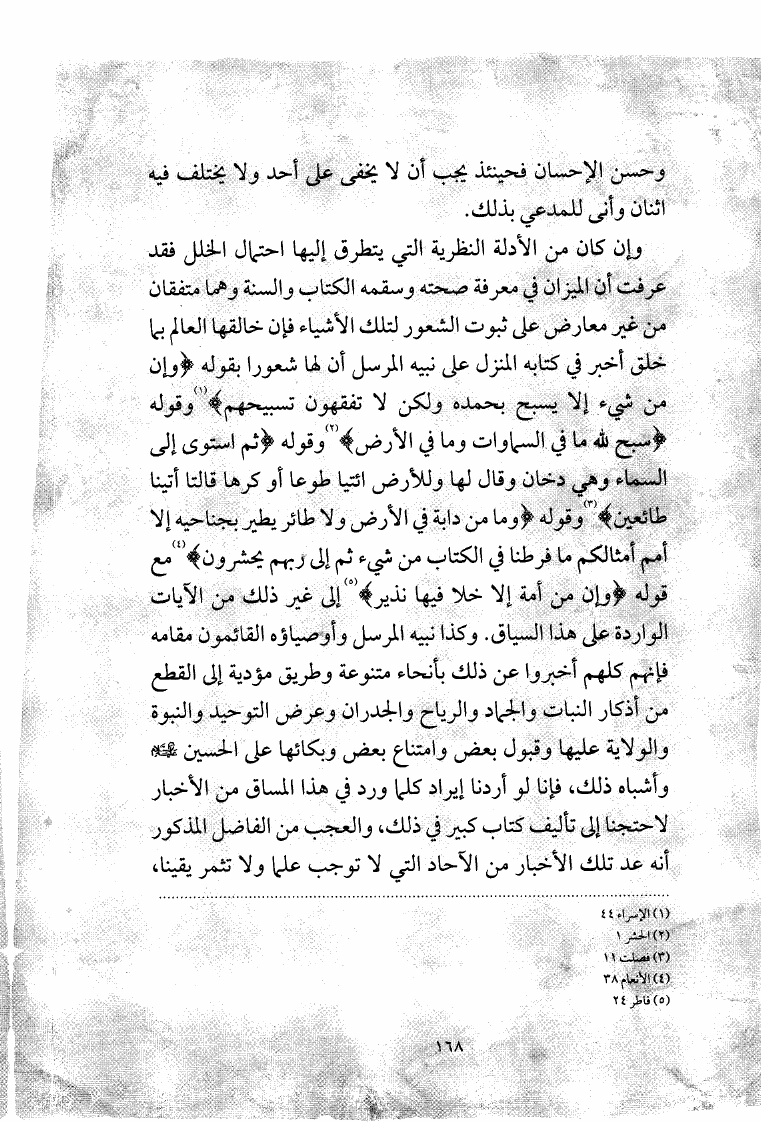 وحسن الإحسان فحينئذ يجب أن لا يخفى على أحد ولا يختلف فيه
اثنان وأنى للمدعي بذلك.
وإن كان من الأدلة النظرية التي يتطرق إليها احتمال الخلل فقد
عرفت أن الميزان في معرفة صحته وسقمه الكتاب والسنة وهما متفقان
من غير معارض على ثبوت الشعور لتلك الأشياء فإن خالقها العالم بما
خلق أخبر في كتابه المنزل على نبيه المرسل أن لها شعورا بقوله ﴿وإن
من شيء إلا يسبح بحمده ولكن لا تفقهون تسبيحهم﴾(١) وقوله
﴿سبح لله ما في السماوات وما في الأرض﴾(٢) وقوله ﴿ثم استوى إلى
السماء وهي دخان وقال لها وللأرض ائتيا طوعا أو كرها قالتا أتينا
طائعين﴾(٣) وقوله ﴿وما من دابة في الأرض ولا طائر يطير بجناحيه إلا
أمم أمثالكم ما فرطنا في الكتاب من شيء ثم إلى ربهم يحشرون﴾(٤) مع
قوله ﴿وإن من أمة إلا خلا فيها نذير﴾(٥) إلى غير ذلك من الآيات
الواردة على هذا السياق. وكذا نبيه المرسل وأوصياؤه القائمون مقامه
فإنهم كلهم أخبروا عن ذلك بأنحاء متنوعة وطريق مؤدية إلى القطع
من أذكار النبات والجماد والرياح والجدران وعرض التوحيد والنبوة
والولاية عليها وقبول بعض وامتناع بعض وبكائها على الحسين عليه السلام
وأشباه ذلك، فإنا لو أردنا إيراد كلما ورد في هذا المساق من الأخبار
لاحتجنا إلى تأليف كتاب كبير في ذلك، والعجب من الفاضل المذكور
أنه عد تلك الأخبار من الآحاد التي لا توجب علما ولا تثمر يقينا،
(١) الإسراء ٤٤
(٢) الحشر ١
(٣) فصلت ١١
(٤) الأنعام ٣٨
(٥) فاطر ٢٤
١٦٨